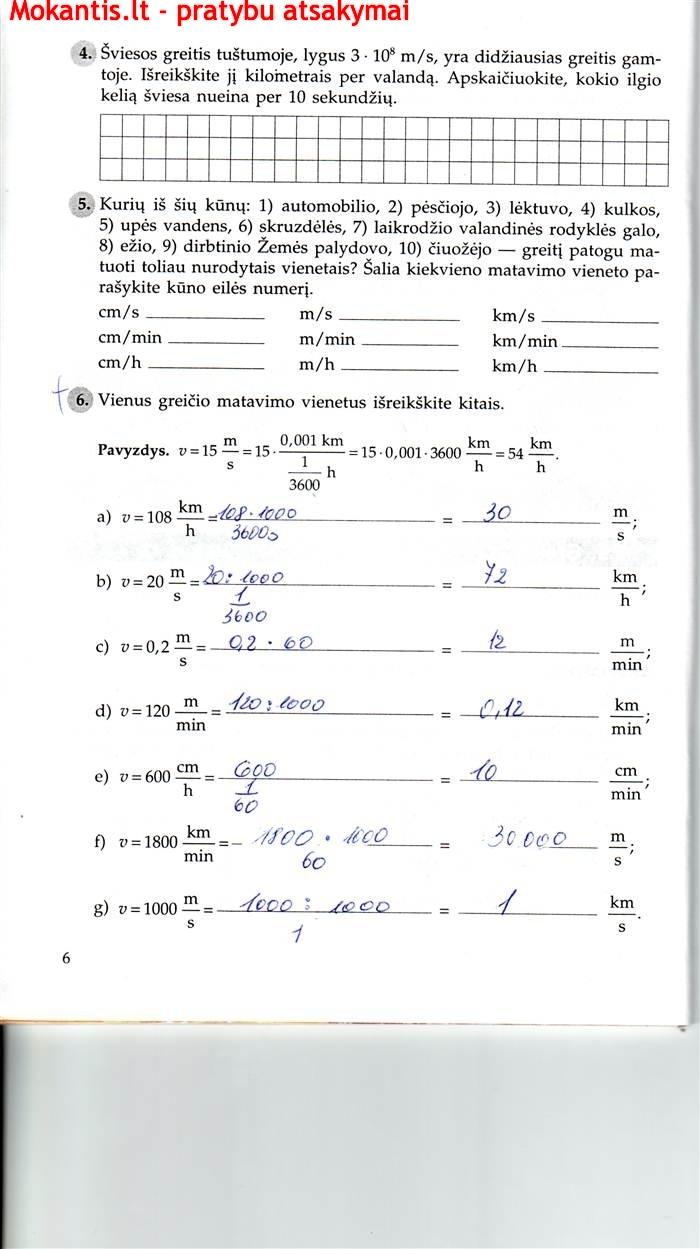 Mokantis.lt - pratybu atsakymai
4. Šviesos greitis tuštumoje, lygus 3 · 10⁸ m/s, yra didžiausias greitis gam-
toje. Išreikškite jį kilometrais per valandą. Apskaičiuokite, kokio ilgio
kelią šviesa nueina per 10 sekundžių.
5. Kurių iš šių kūnų: 1) automobilio, 2) pėsčiojo, 3) lėktuvo, 4) kulkos,
5) upės vandens, 6) skruzdėlės, 7) laikrodžio valandinės rodyklės galo,
8) ežio, 9) dirbtinio Žemės palydovo, 10) čiuožėjo — greitį patogu ma-
tuoti toliau nurodytais vienetais? Šalia kiekvieno matavimo vieneto pa-
rašykite kūno eilės numerį.
cm/s m/s km/s
cm/min m/min km/min
cm/h m/h km/h
6. Vienus greičio matavimo vienetus išreikškite kitais.
Pavyzdys. v = 15 m/s = 15 · 0,001 km / (1/3600 h) = 15 · 0,001 · 3600 km/h = 54 km/h.
a) v = 108 km/h = 108 · 1000 / 3600s = 30 m/s;
b) v = 20 m/s = 20 : 1000 / (1/3600) = 72 km/h;
c) v = 0,2 m/s = 0,2 · 60 = 12 m/min;
d) v = 120 m/min = 120 : 1000 = 0,12 km/min;
e) v = 600 cm/h = 600 / (1/60) = 10 cm/min;
f) v = 1800 km/min = 1800 · 1000 / 60 = 30 000 m/s;
g) v = 1000 m/s = 1000 : 1000 / 1 = 1 km/s.
6